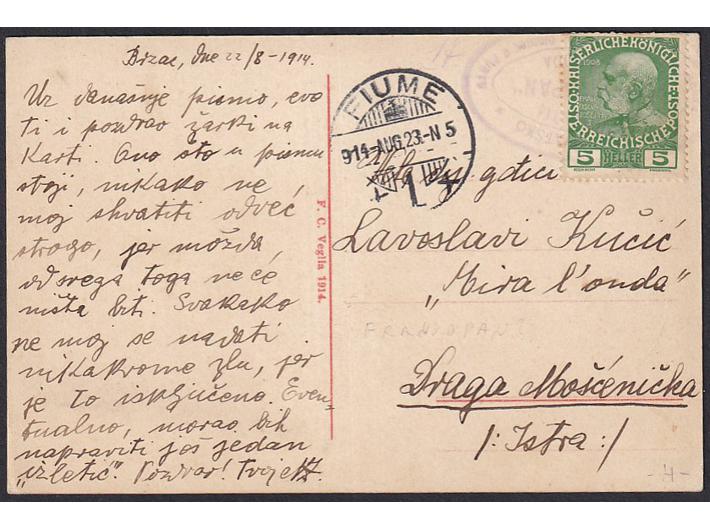 Brzac, dne 22/8-1914.
Uz današnje pismo, evo
ti i pozdrav žarki na
karti. Ono što u pismu
stoji, nikako ne
moj shvatiti odveć
strogo, jer možda
od svega toga neće
ništa biti. Svakako
ne moj se nadati
nikakvome zlu, jer
je to isključeno. Even-
tualno, morao bih
napraviti još jedan
"izletić". Pozdrav! Tvoj
F. C. Veglia 1914.
14
FIUME
914-AUG.23.-N5
1 L
KAISERLICHE KÖNIGLICHE
1908
ÖSTERREICHISCHE POST
5 HELLER 5
gđici
Lavoslavi Kučić
"Mira l'onda"
FRANKOPAN
Draga Mošćenička
/: Istra :/
-4-